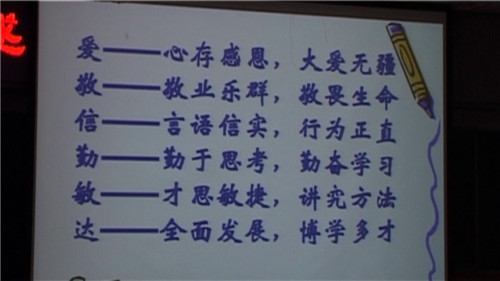 爱——心存感恩，大爱无疆
敬——敬业乐群，敬畏生命
信——言语信实，行为正直
勤——勤于思考，勤奋学习
敏——才思敏捷，讲究方法
达——全面发展，博学多才